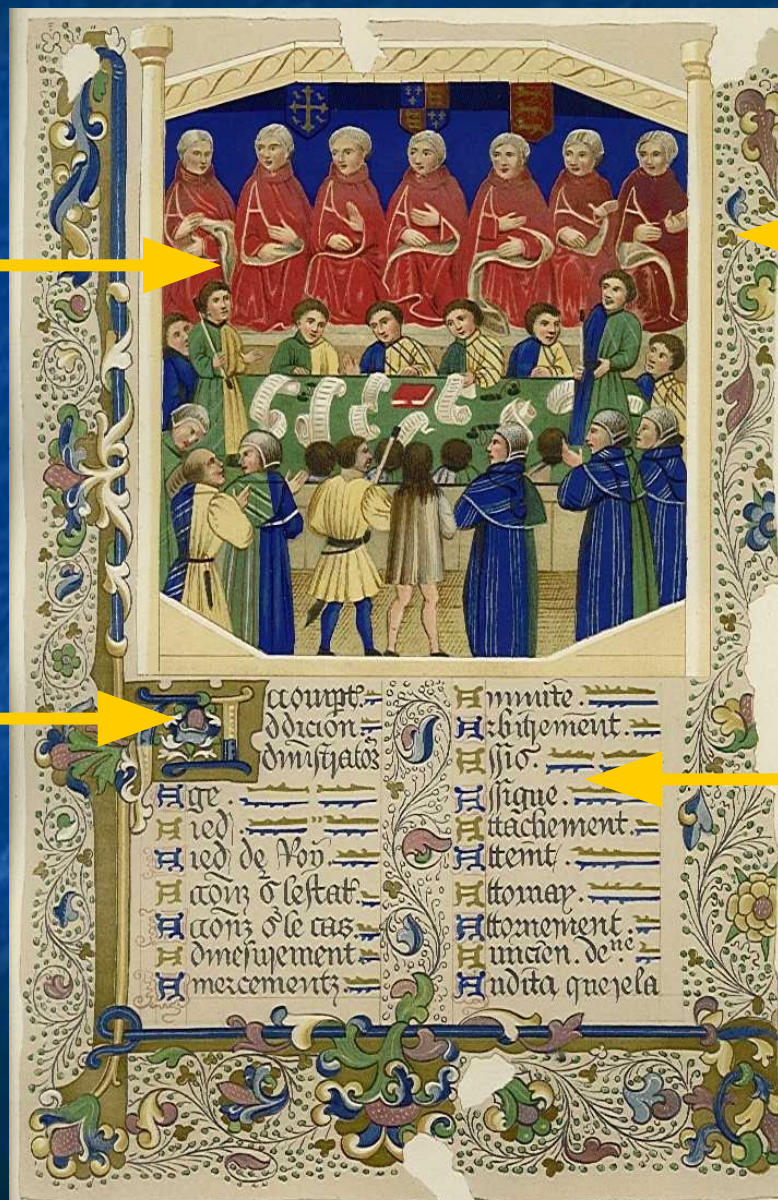 Accompt.
ddicion
dministratoꝛ
Age.
Aied
Aied de Roy
Acconz s lestat.
Acconz s le cas
Admesurement
Amercementz
Annuite.
Arbitrement.
Assis.
Assigne.
Attachement.
Atteint.
Attornay.
Attornement.
Auncien. de.ne
Audita querela